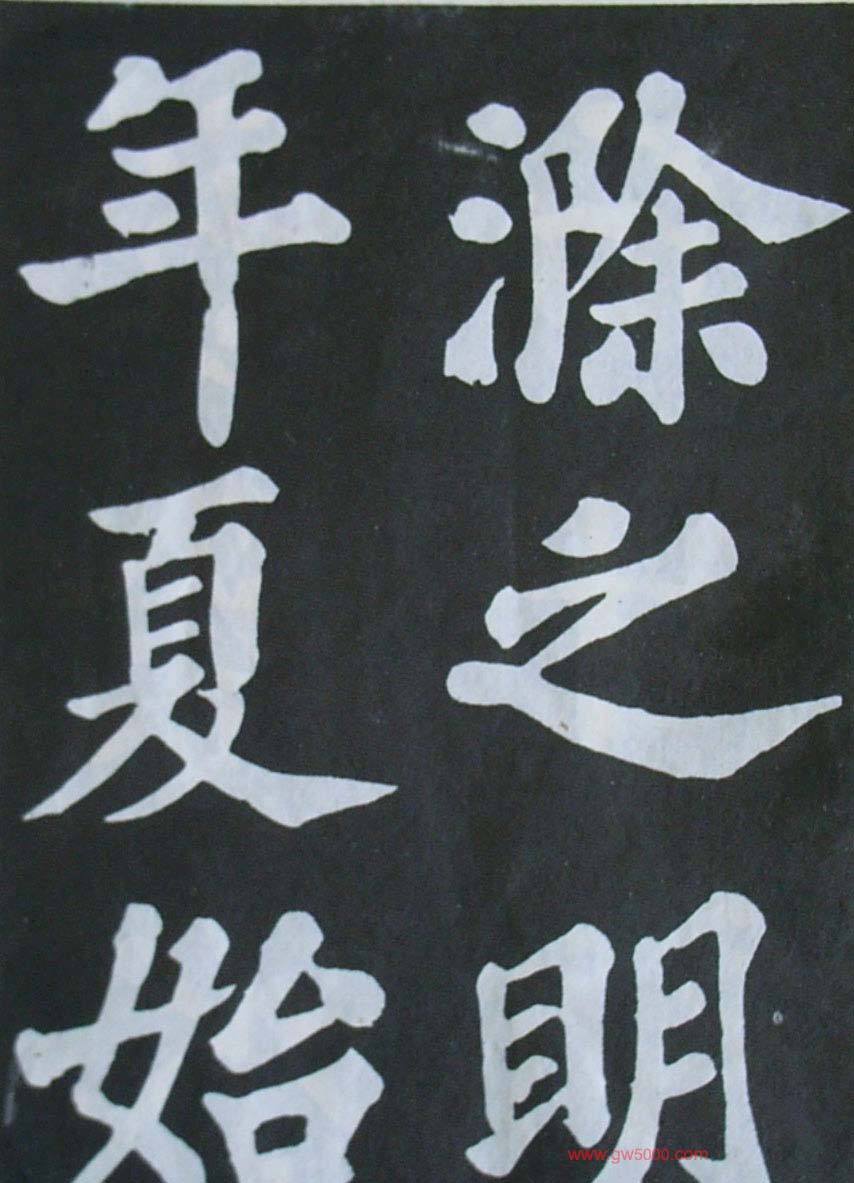 滁之明
年夏始
www.gw5000.com